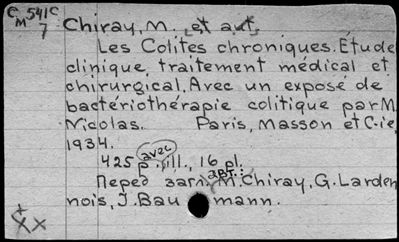 C 541c
M 7
Chiray, M. [et aut.]
Les Colites chroniques. Étude
clinique, traitement médical et
chirurgical. Avec un exposé de
bactériothérapie colitique par M.
Nicolas. Paris, Masson et C-ie,
1934.
425 p. avec ill., 16 pl.
Перед загл. авт.: M. Chiray, G. Larden
nois, J. Baumann.